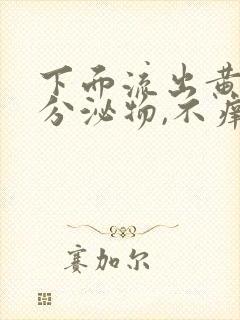 下而流出黄
分泌物,不痒
赛加尔